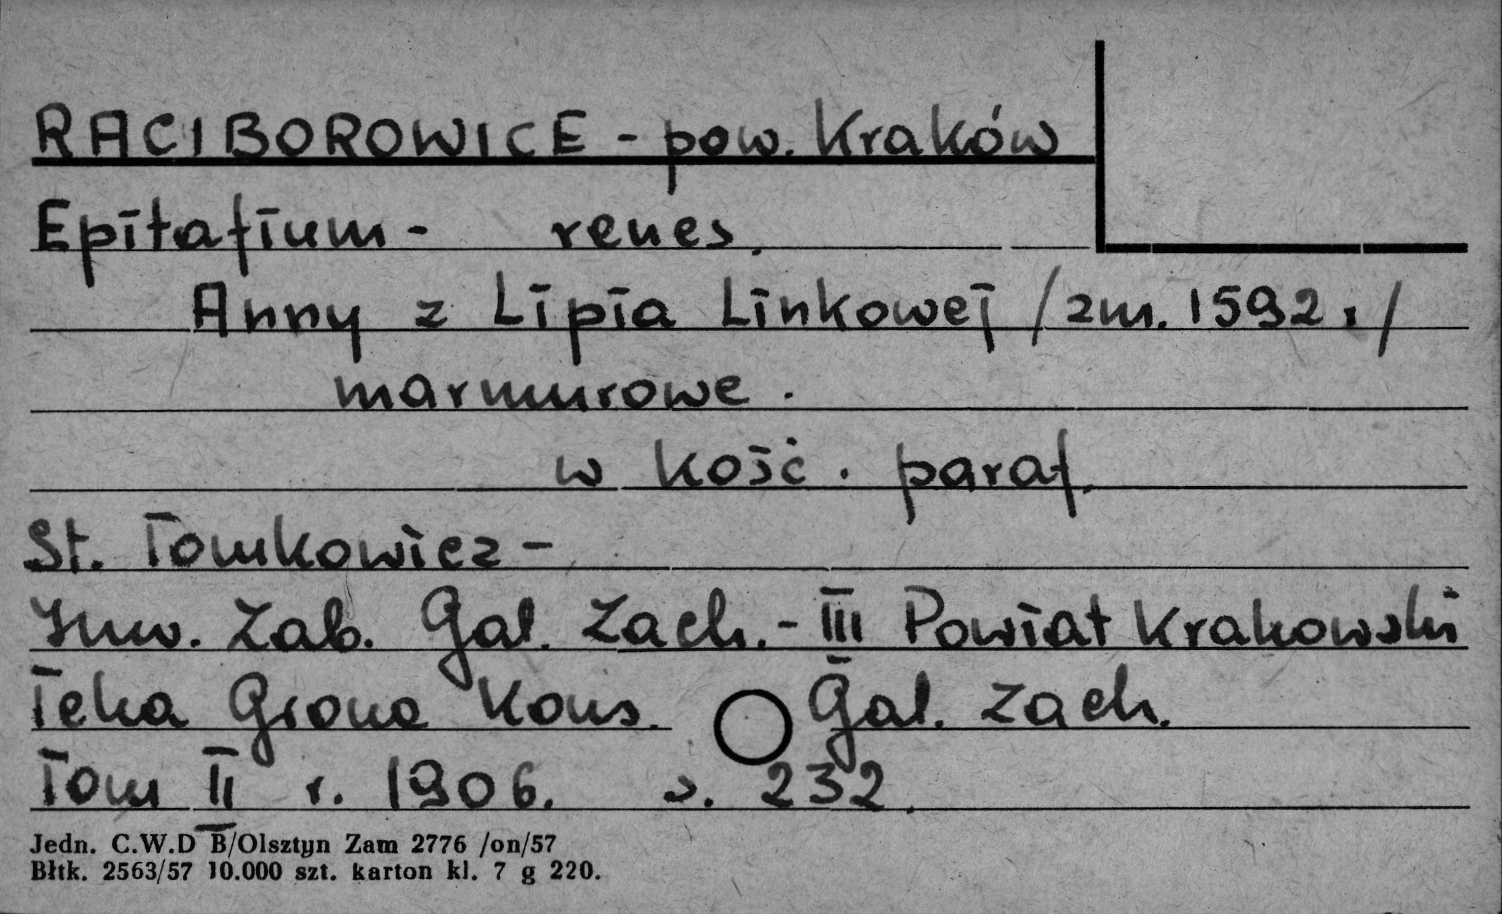 RACIBOROWICE - pow. Kraków
Epitafium - renes.
Anny z Lipia Linkowej /zm. 1592 r/
marmurowe.
w kość. paraf.
St. Tomkowicz -
Inw. Zab. Gal. Zach. - III Powiat Krakowski
Teka Grona Kons. Gal. Zach.
Tom II r. 1906. s. 232.
Jedn. C.W.D B/Olsztyn Zam 2776 /on/57
Błtk. 2563/57 10.000 szt. karton kl. 7 g 220.